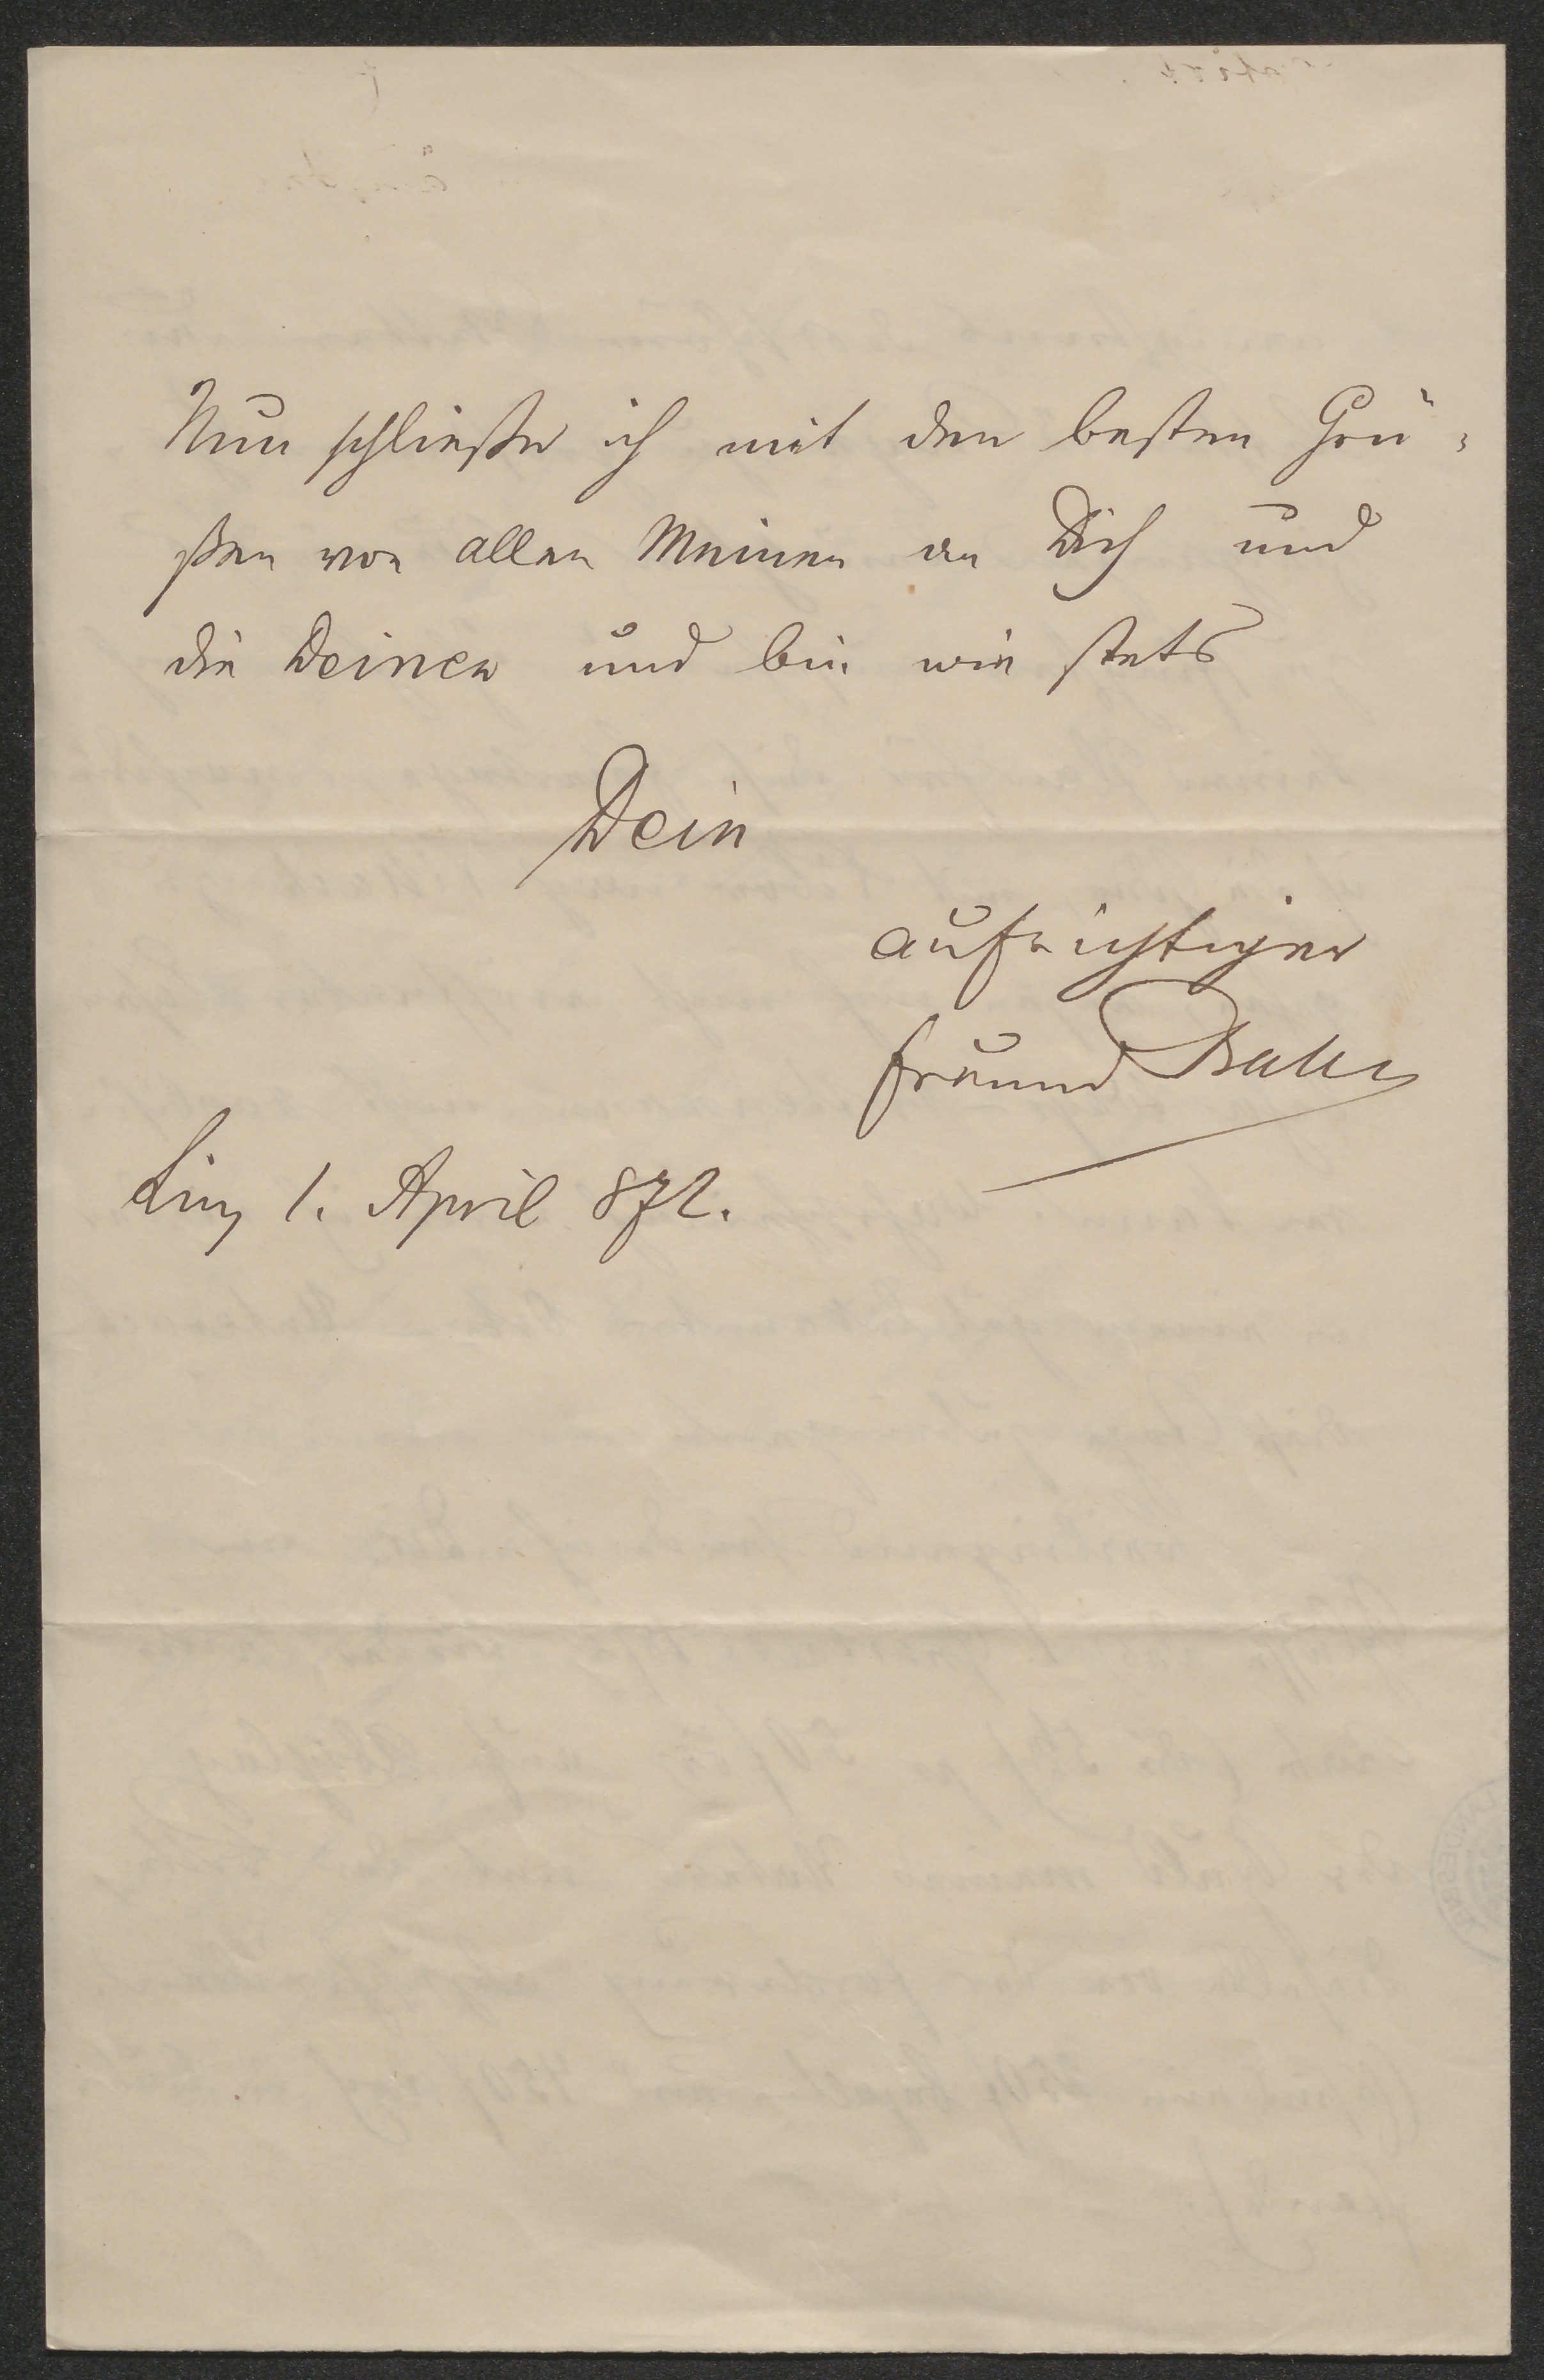 Nun schließe ich mit den besten Grü-
ßen von allen Meinen an Dich und
die Deinen und bin wie stets
Dein
aufrichtiger
Freund
Linz 1. April 872.